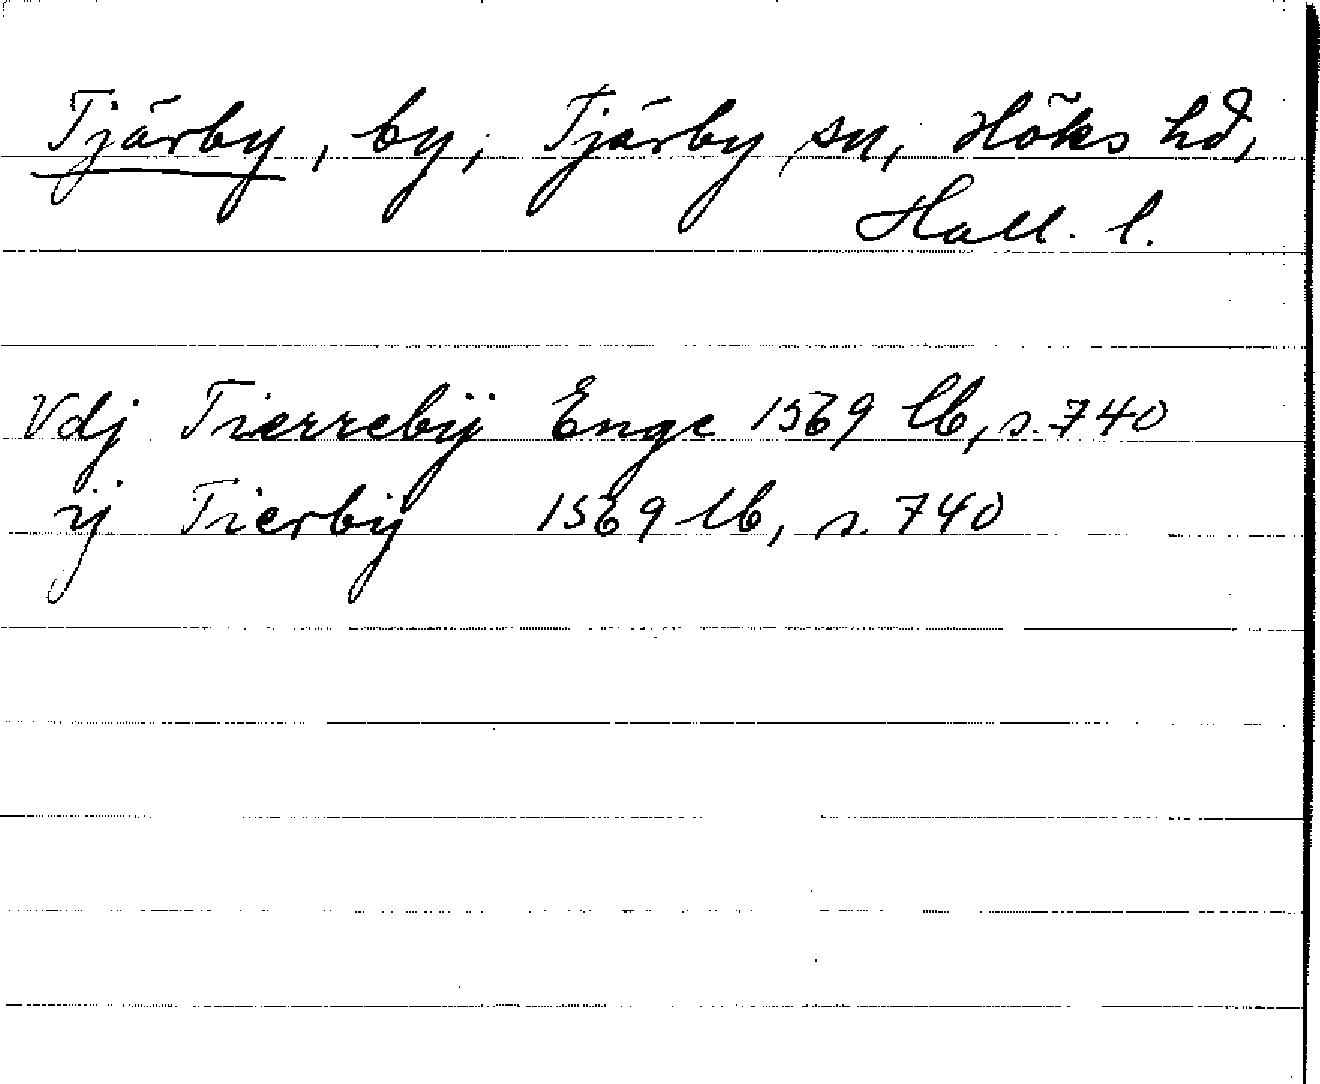 Tjärby, by, Tjärby sn, Höks hd,
Hall. l.
Vdj Tierrebÿ Enge 1569 lb, s. 740
ij Tierbÿ 1569 lb, s. 740